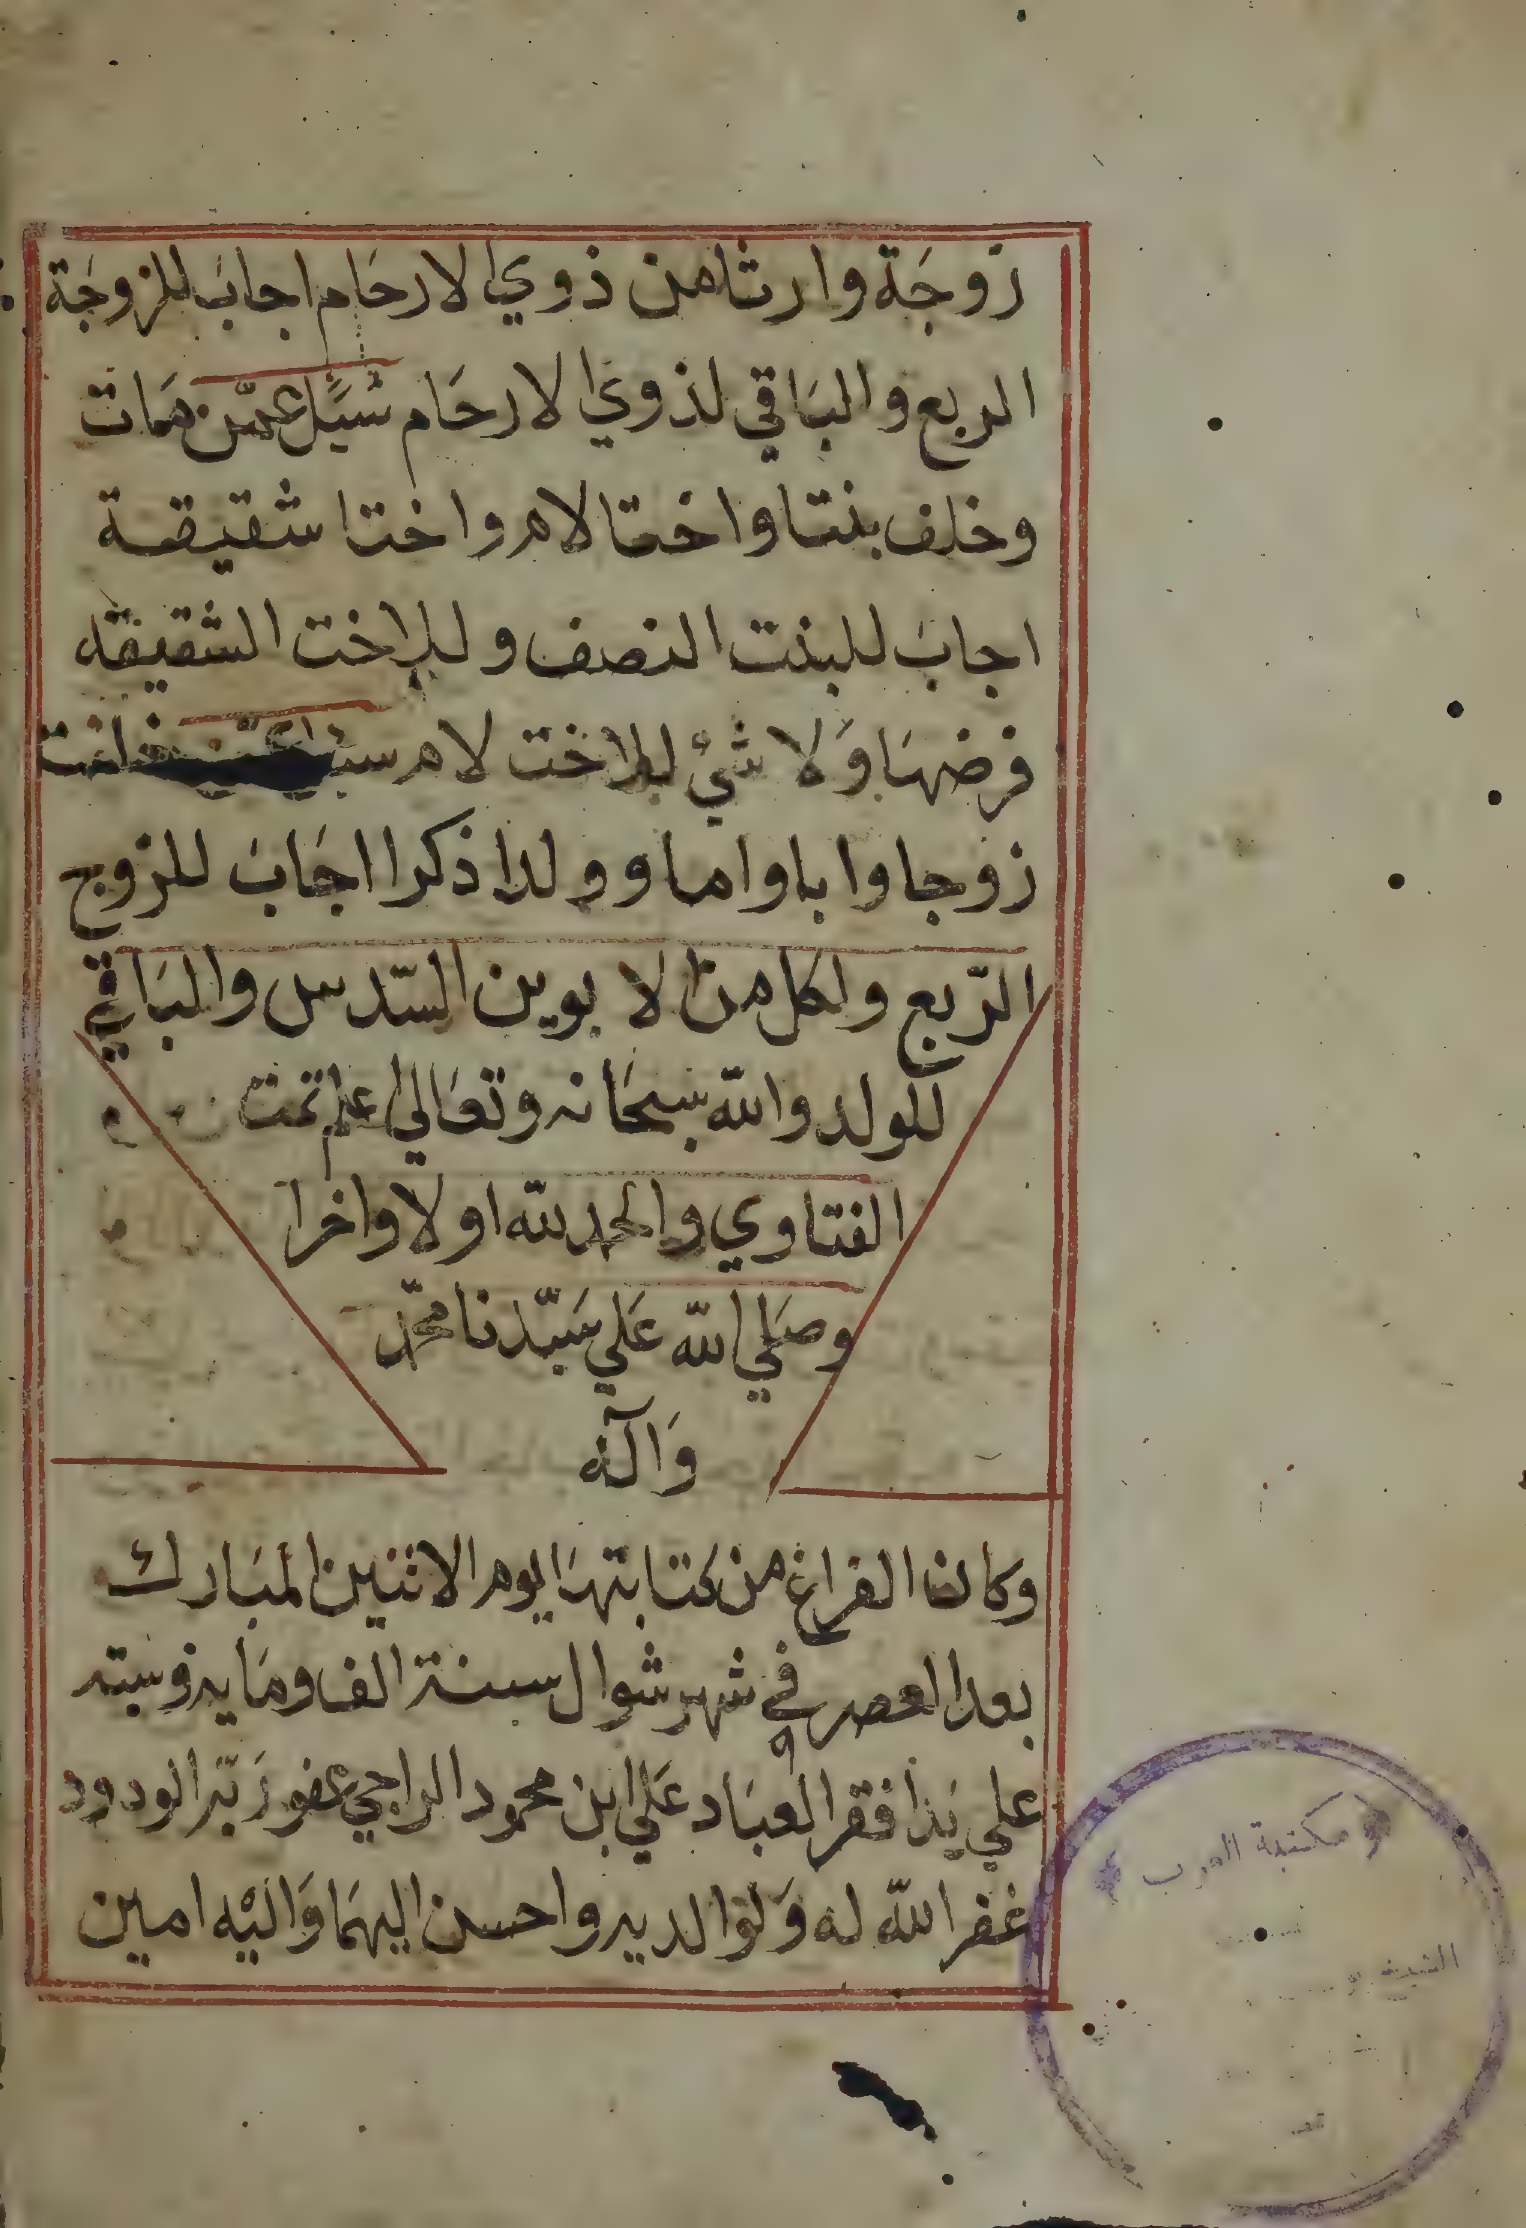 زوجة وارثا من ذوي الارحام اجاب للزوجة
الربع والباقي لذوي الارحام سيل عمن مات
وخلف بنتا واختا لام واختا شقيقة
اجاب للبنت النصف وللاخت الشقيقه
فرضها ولا شيء للاخت لام خلفت
زوجا وابا واما وولدا ذكرا اجاب للزوج
الربع ولكل من الابوين السدس والباقي
للولد والله سبحانه وتعالي اعلم تمت
الفتاوي والحمد لله اولا واخرا
وصلي الله علي سيدنا محمد
وآله
وكان الفراغ من كتابتها يوم الاثنين المبارك
بعد العصر في شهر شوال سنة الف ومايه وسته
علي يد افقر العباد علي ابن محمود الراجي عفو ربه الودود
غفر الله له ولوالديه واحسن اليهما واليه امين
مكتبة العرب